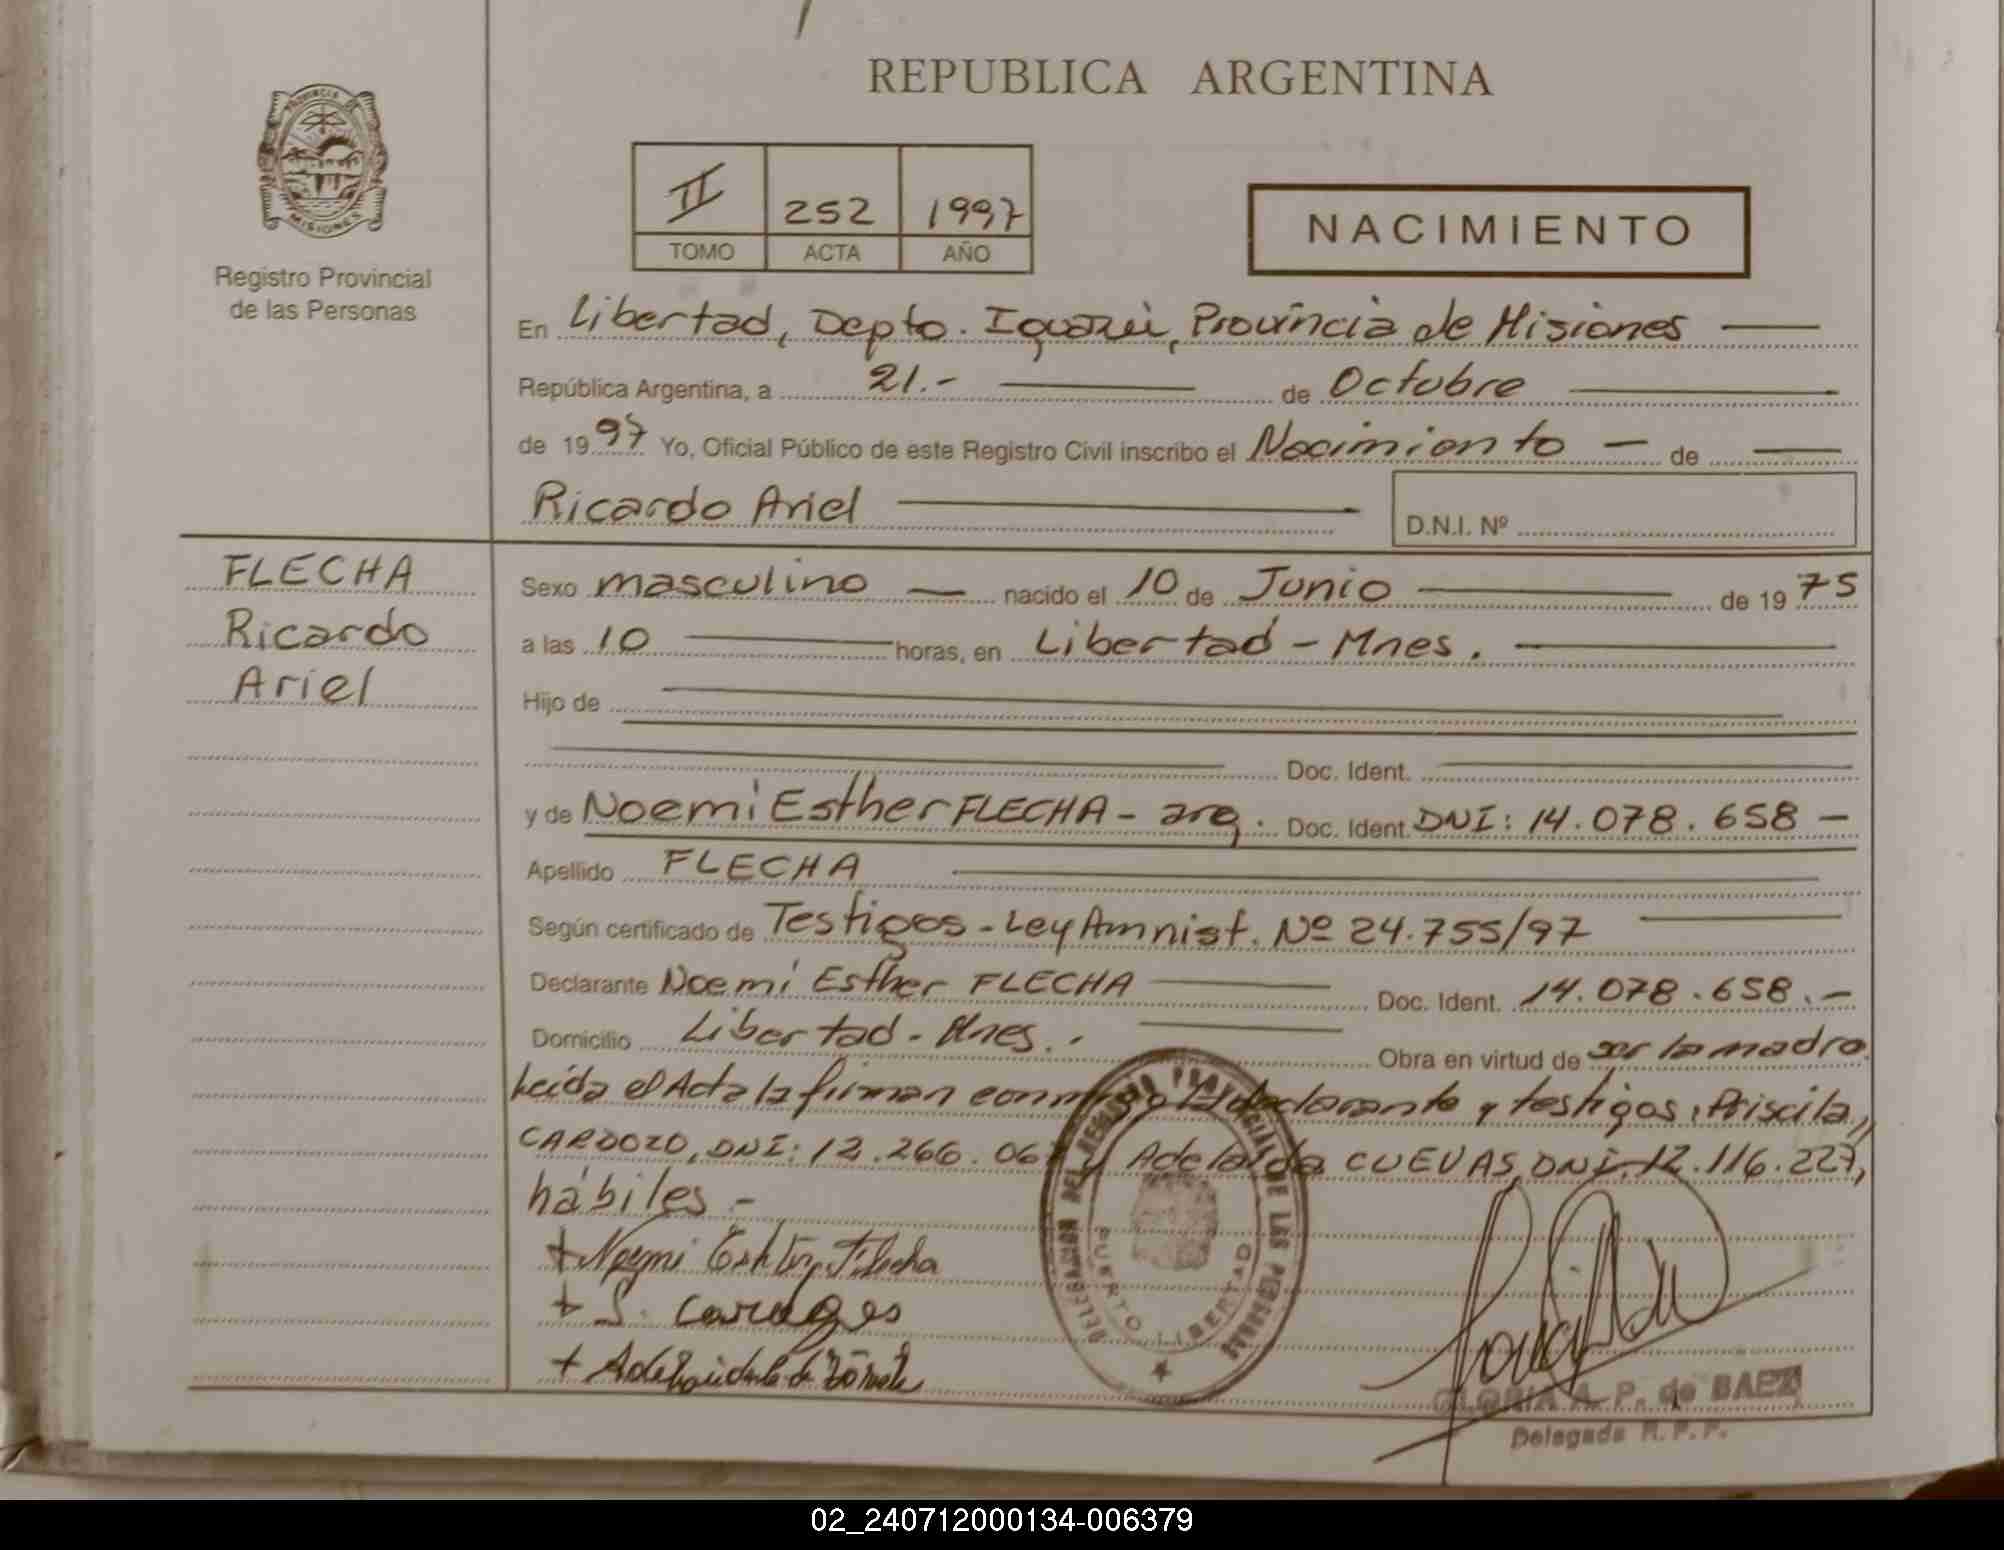 REPUBLICA ARGENTINA
PROVINCIA DE
MISIONES
Registro Provincial
de las Personas
II 252 1997
TOMO ACTA AÑO
NACIMIENTO
En Libertad, Depto. Iguazú, Provincia de Misiones
República Argentina, a 21.- de Octubre
de 1997 Yo, Oficial Público de este Registro Civil inscribo el Nacimiento - de
Ricardo Ariel
D.N.I. Nº
FLECHA
Ricardo
Ariel
Sexo masculino nacido el 10 de Junio de 1975
a las 10 horas, en Libertad - Mnes.
Hijo de
Doc. Ident.
y de Noemi Esther FLECHA - arg. Doc. Ident. DNI: 14.078.658 -
Apellido FLECHA
Según certificado de Testigos - Ley Amnist. Nº 24.755/97
Declarante Noemi Esther FLECHA Doc. Ident. 14.078.658.-
Domicilio Libertad - Mnes. Obra en virtud de ser la madre.
Leída el Acta la firman conmigo la declarante y testigos: Priscila
CARDOZO, DNI: 12.266.06 y Adelaida CUEVAS, DNI: 12.116.227,
hábiles -
+ Noemi Esther Flecha
+
+
DELEGACION DEL REGISTRO PROVINCIAL DE LAS PERSONAS
PUERTO LIBERTAD
GLORIA A. P. de BAEZ
Delegada R. P. P.
02_240712000134-006379